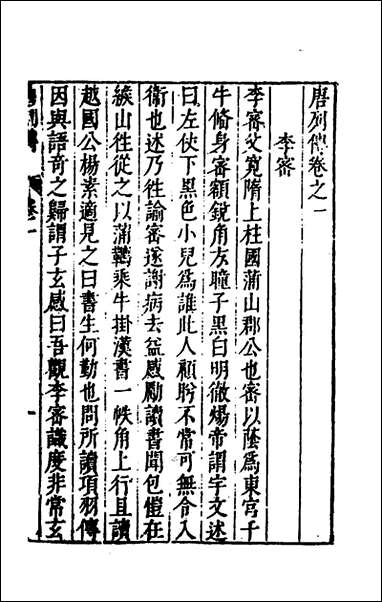 唐列傳卷之一
李密
李密父寛隋上柱國蒲山郡公也密以蔭爲東宫千
牛俻身密額銳角方瞳子黑白明徹煬帝謂宇文述
曰左仗下黑色小兒爲誰此人顧盻不常可無令入
衛也述乃徃諭密遂謝病去益感勵讀書聞包愷在
緱山徃從之以蒲韉乘牛掛漢書一帙角上行且讀
越國公楊素適見之曰書生何勤也問所讀項羽傳
因與語竒之歸謂子玄感曰吾觀李密識度非常玄